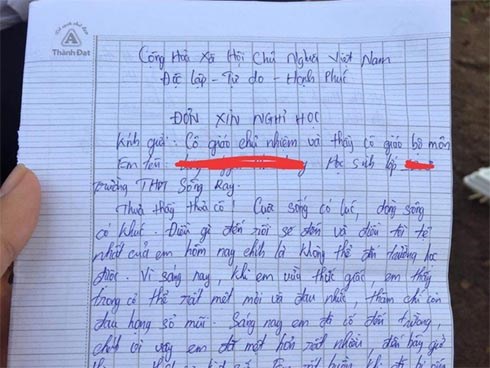 Thành Đạt
Cộng Hoà Xã Hội Chủ Nghĩa Việt Nam
Độc Lập - Tự do - Hạnh Phúc
ĐƠN XIN NGHỈ HỌC
Kính gửi: Cô giáo chủ nhiệm và thầy cô giáo bộ môn
Em tên: Học Sinh lớp
trường THPT Sông Ray.
Thưa thầy thưa cô! Cuộc sống có lúc, dòng sông
có khúc. Điều gì đến rồi sẽ đến và điều tồi tệ
nhất của em hôm nay chính là không thể đến trường học
được. Vì sáng nay, khi em vừa thức giấc, em thấy
trong cơ thể rất mệt mỏi và đau nhức, thậm chí còn
đau họng sổ mũi. Sáng nay em đã cố đến trường,
chính vì vậy em đã mệt hơn rất nhiều, đến bây giờ